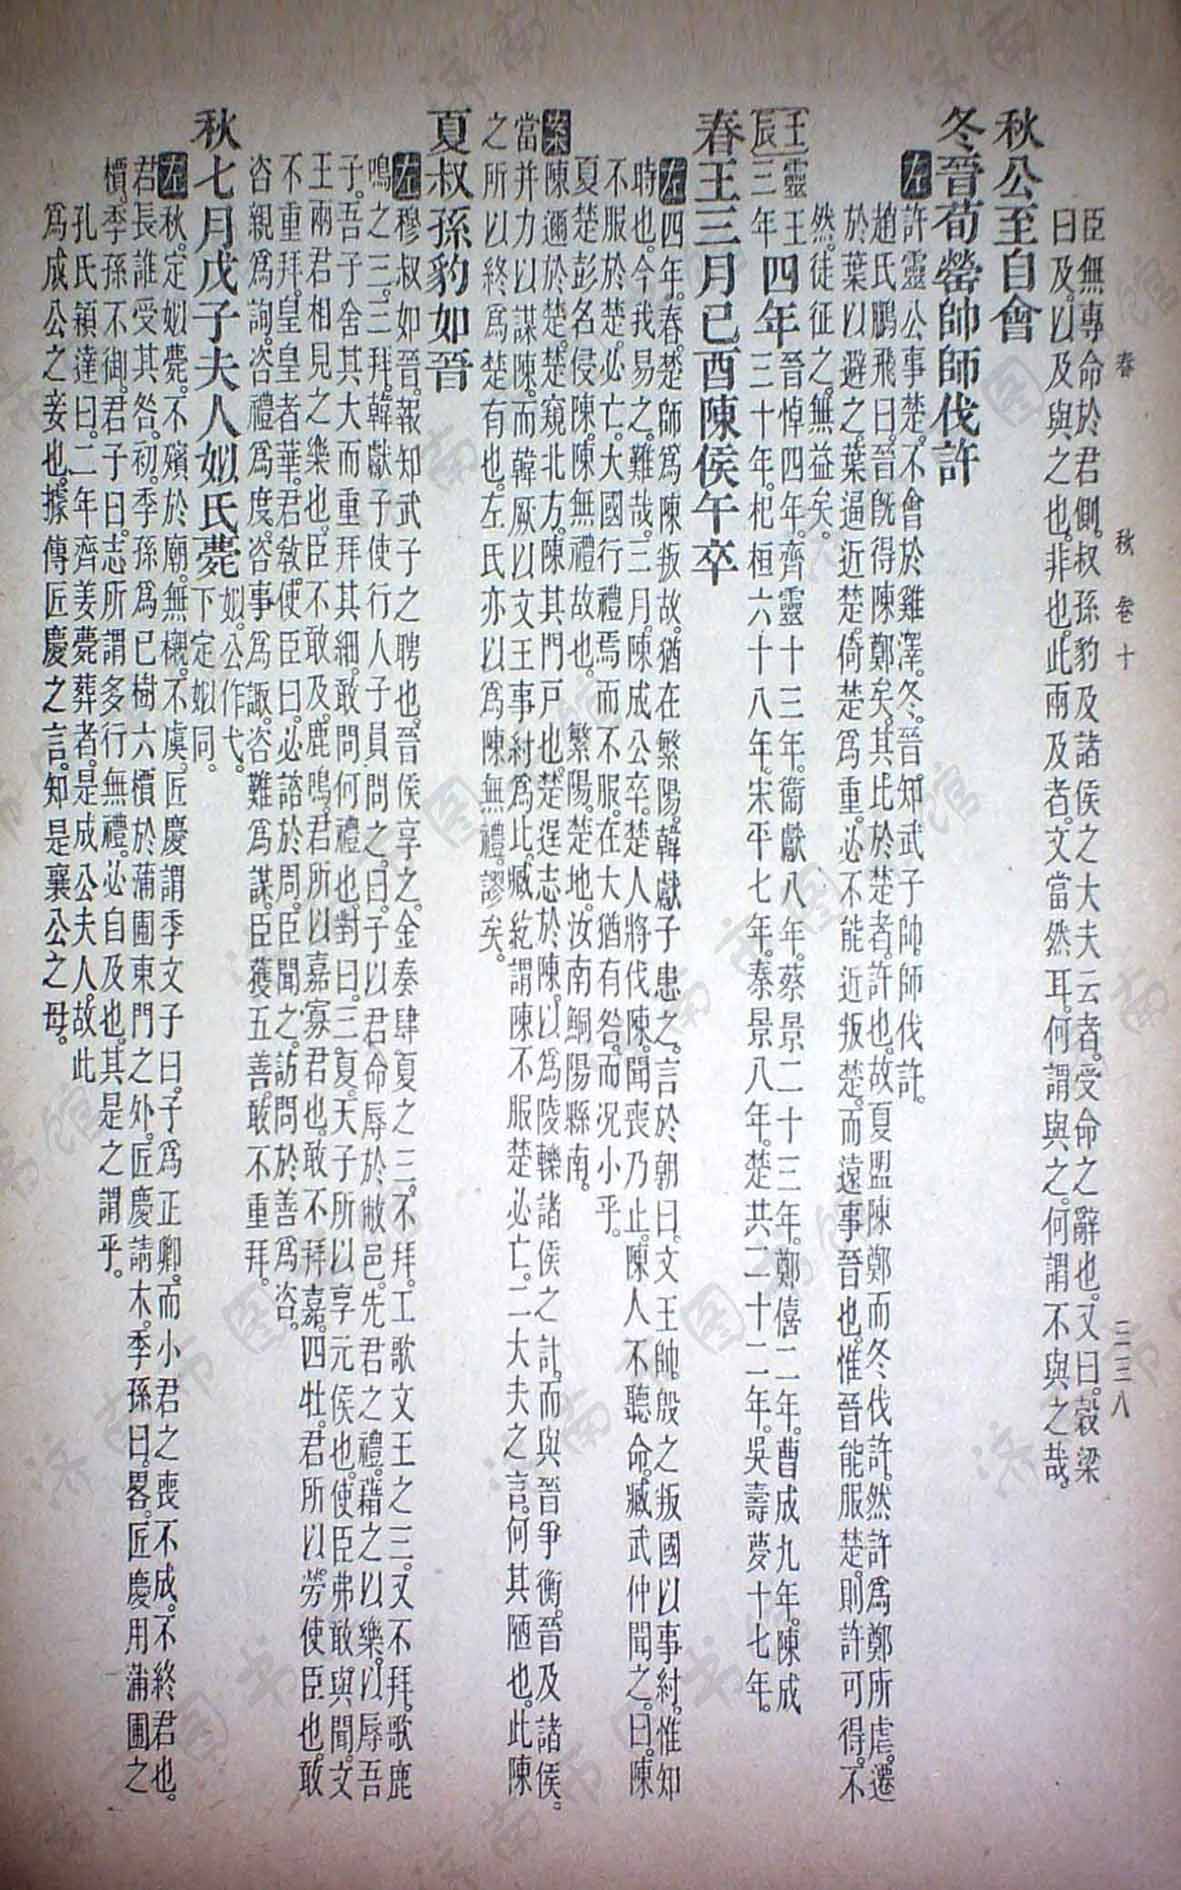 春　秋　卷十　二三八
臣無專命於君側。叔孫豹及諸侯之大夫云者。受命之辭也。又曰。穀梁
曰及。以及與之也。非也。此兩及者。文當然耳。何謂與之。何謂不與之哉。
秋公至自會
冬晉荀罃帥師伐許
左許靈公事楚。不會於雞澤。冬。晉知武子帥師伐許。
趙氏鵬飛曰。晉旣得陳鄭矣。其比於楚者。許也。故夏盟陳鄭而冬伐許。然許爲鄭所虐。遷
於葉以避之。葉逼近楚。倚楚爲重。必不能近叛楚。而遠事晉也。惟晉能服楚。則許可得。不
然。徒征之。無益矣。
壬辰 靈王三年 四年 晉悼四年。齊靈十三年。衞獻八年。蔡景二十三年。鄭僖二年。曹成九年。陳成
三十年。杞桓六十八年。宋平七年。秦景八年。楚共二十二年。吳壽夢十七年。
春王三月己酉陳侯午卒
左四年。春。楚師爲陳叛故。猶在繁陽。韓獻子患之。言於朝曰。文王帥殷之叛國以事紂。惟知
時也。今我易之。難哉。三月。陳成公卒。楚人將伐陳。聞喪乃止。陳人不聽命。臧武仲聞之。曰。陳
不服於楚。必亡。大國行禮焉而不服。在大猶有咎。而况小乎。
夏楚彭名侵陳。陳無禮故也。繁陽。楚地。汝南鮦陽縣南。
案陳邇於楚。楚窺北方。陳其門戸也。楚逞志於陳。以爲陵轢諸侯之計。而與晉爭衡。晉及諸侯。
當并力以謀陳。而韓厥以文王事紂爲比。臧紇謂陳不服楚必亡。二大夫之言。何其陋也。此陳
之所以終爲楚有也。左氏亦以爲陳無禮。謬矣。
夏叔孫豹如晉
左穆叔如晉。報知武子之聘也。晉侯享之。金奏肆夏之三。不拜。工歌文王之三。又不拜。歌鹿
鳴之三。三拜。韓獻子使行人子員問之。曰。子以君命辱於敝邑。先君之禮。藉之以樂。以辱吾
子。吾子舍其大而重拜其細。敢問何禮也。對曰。三夏。天子所以享元侯也。使臣弗敢與聞。文
王兩君相見之樂也。臣不敢及。鹿鳴。君所以嘉寡君也。敢不拜嘉。四牡。君所以勞使臣也。敢
不重拜。皇皇者華。君敎使臣曰。必諮於周。臣聞之。訪問於善爲咨。
咨親爲詢。咨禮爲度。咨事爲諏。咨難爲謀。臣獲五善。敢不重拜。
秋七月戊子夫人姒氏薨 姒。公作弋。下定姒同。
左秋。定姒薨。不殯於廟。無櫬。不虞。匠慶謂季文子曰。子爲正卿。而小君之喪不成。不終君也。
君長誰受其咎。初。季孫爲已樹六檟於蒲圃東門之外。匠慶請木。季孫曰。畧。匠慶用蒲圃之
檟。季孫不御。君子曰。志所謂多行無禮。必自及也。其是之謂乎。
孔氏穎達曰。二年齊姜薨葬者。是成公夫人。故此
爲成公之妾也。據傳匠慶之言。知是襄公之母。